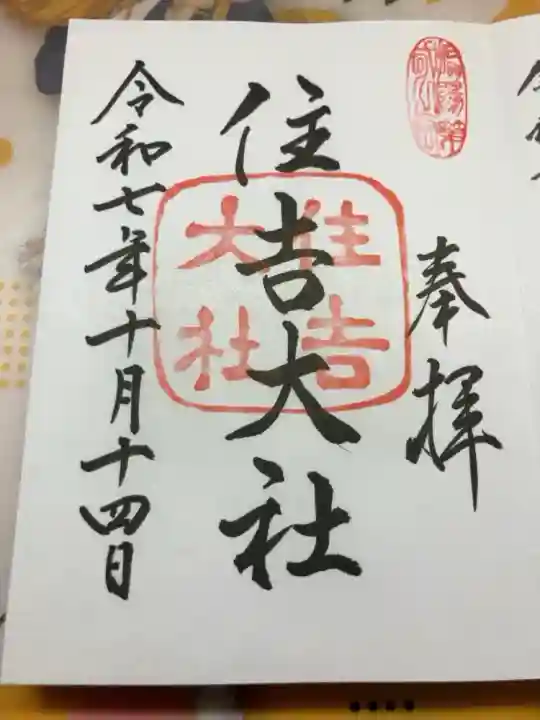 奉拝
住吉大社
住吉大社
令和七年十月十四日